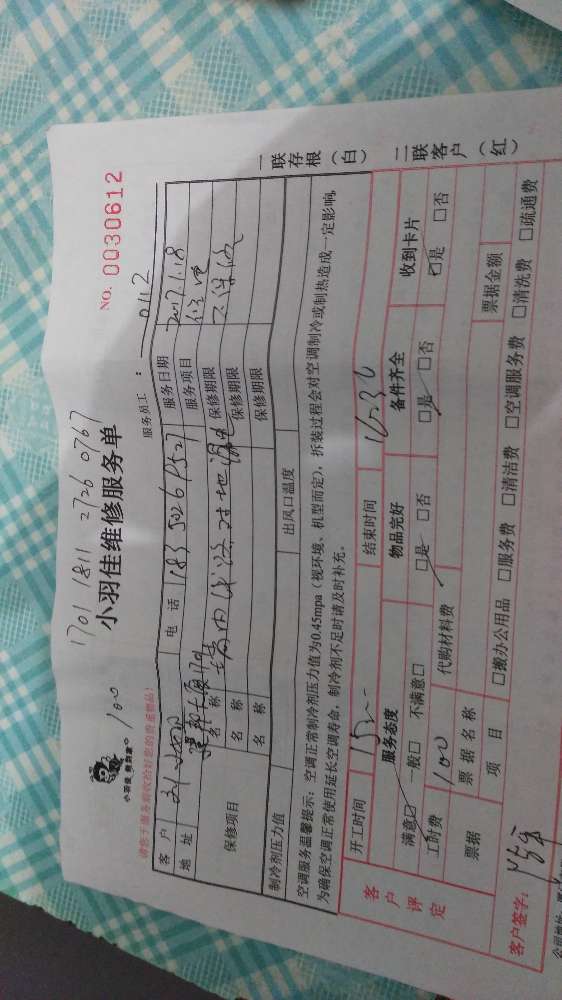 1701 1811 2726 0767
NO. 0030612
100
小羽佳维修服务单
服务员工： 0112
客户 电话 服务日期 2017.1.18
地址 服务项目 修理
保修项目 名称 保修期限
名称 保修期限
名称 保修期限
制冷剂压力值 出风口温度
空调服务温馨提示：空调正常制冷剂压力值为0.45mpa（视环境、机型而定），拆装过程会对空调制冷或制热造成一定影响，
为确保空调正常使用延长空调寿命，制冷剂不足时请及时补充。
一联存根（白）
二联客户（红）
开工时间 结束时间 1630
客户评定
服务态度 物品完好 备件齐全 收到卡片
满意☑ 一般□ 不满意□ □是 □否 □是 □否 ☑是 □否
工时费 100 代购材料费
票据 票据名称 票据金额
项目 □搬办公用品 □服务费 □清洁费 □空调服务费 □清洗费 □疏通费
客户签字：